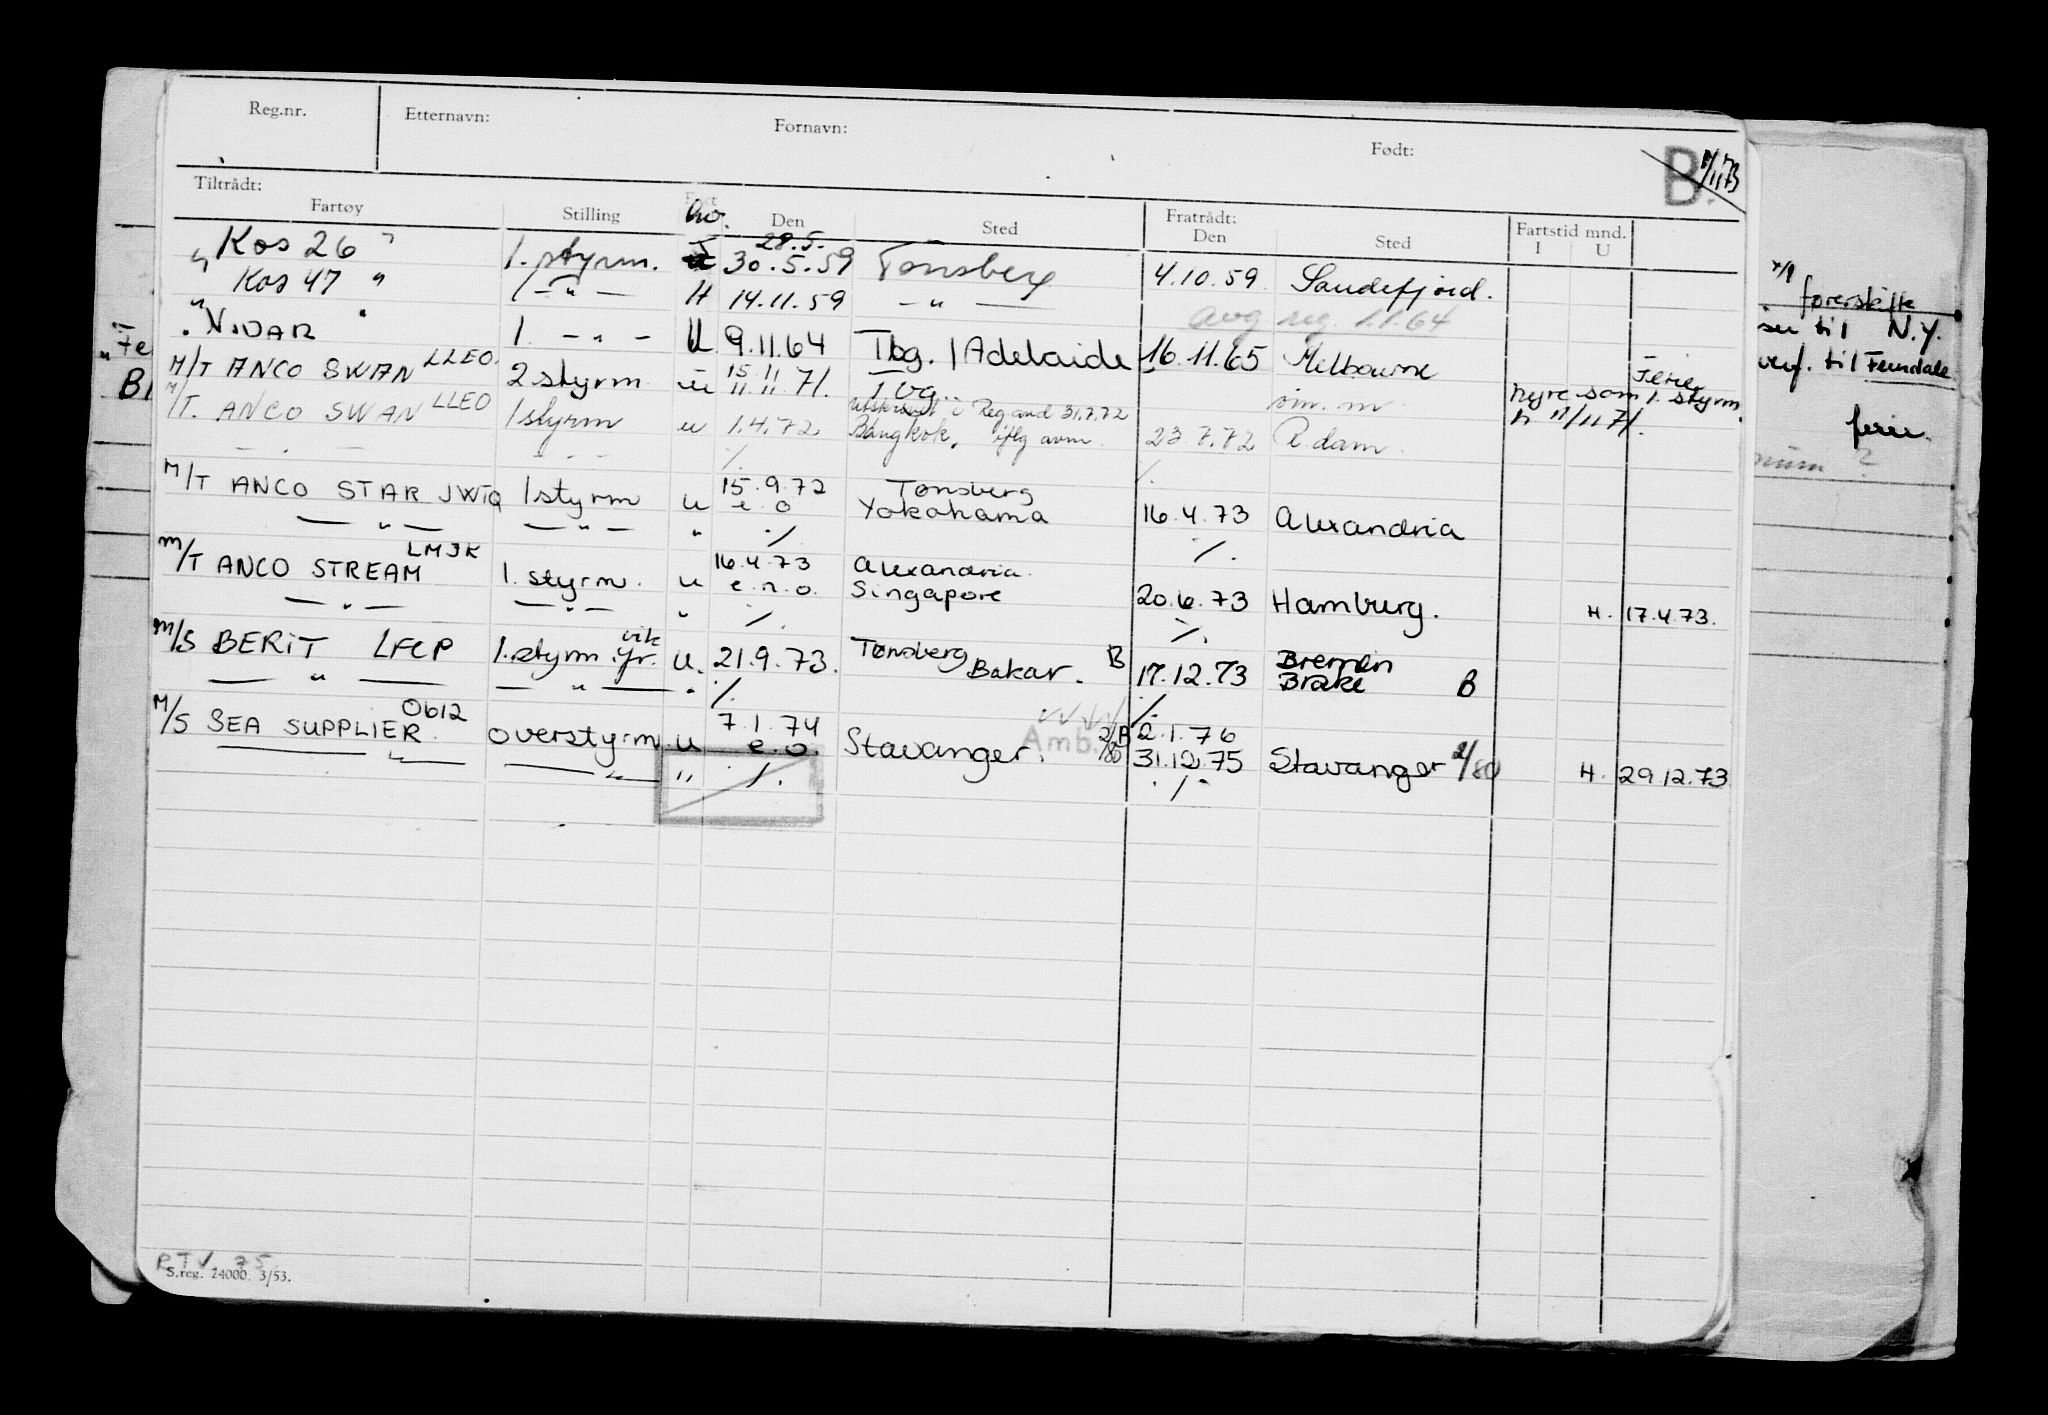 Reg.nr. Etternavn: Fornavn: Født: B. 11/73
Tiltrådt: Fratrådt: Fartstid mnd.
Fartøy Stilling Den Sted Den Sted I U
28.5.
"Kos 26" 1. styrm. 30.5.59 Tønsberg 4.10.59 Sandefjord.
"Kos 47" 1 — " — H 14.11.59 — " —
avg reg. 1.1.64
"Nidar" 1. — " — U 9.11.64 Tbg. / Adelaide 16.11.65 Melbourne
Ferie
M/T ANCO SWAN LLEO. 2 styrm. u 15.11 11.11.71. Tbg. sm. m hyre som 1. styrm.
fr 11/11 71.
utskrevet i Reg and 31.7.72
M/T. ANCO SWAN LLEO 1 styrm u 1.4.72 Bangkok. iflg avm. 23.7.72 R.dam.
— " — — " — ./. ./.
15.9.72 Tønsberg
M/T ANCO STAR JWTQ 1 styrm u e.o Yokohama 16.4.73 Alexandria
— " — — " — " ./. ./.
LMJK 16.4.73 Alexandria.
M/T ANCO STREAM 1. styrm. u e.n.o. Singapore 20.6.73 Hamburg. H. 17.4.73.
— " — — " — " ./. ./.
vik Tønsberg Bremen
M/S BERIT LFCP 1. styrm. fr. u. 21.9.73. Bakar. B 17.12.73 Brake B
— " — — " — " ./. ./.
OBI2 7.1.74 2.1.76
M/S SEA SUPPLIER. overstyrm. u e.o. Stavanger. Amb. 2/80 31.12.75 Stavanger 2/80 H. 29.12.73
— " — — " — " ./. ./.
RTV 75
S.reg. 24000. 3/53.
"Fe
B
førerskifte
til N.Y.
til Ferndale
ferie.
?